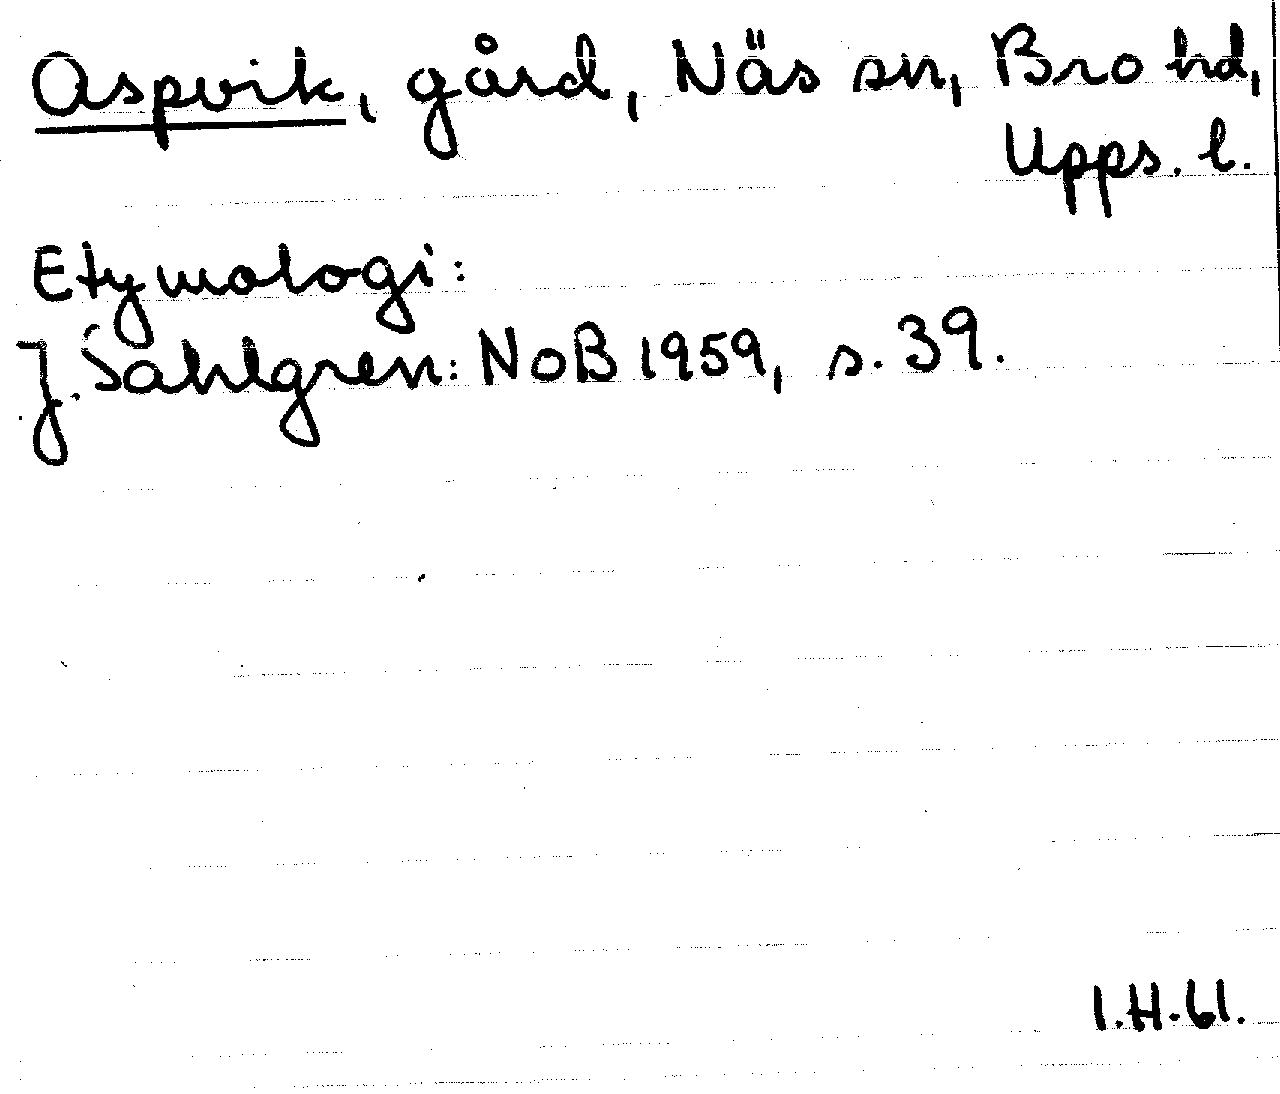 Aspvik, gård, Näs sn, Bro hd,
Upps. l.
Etymologi:
J. Sahlgren: NoB 1959, s. 39.
I.H.61.